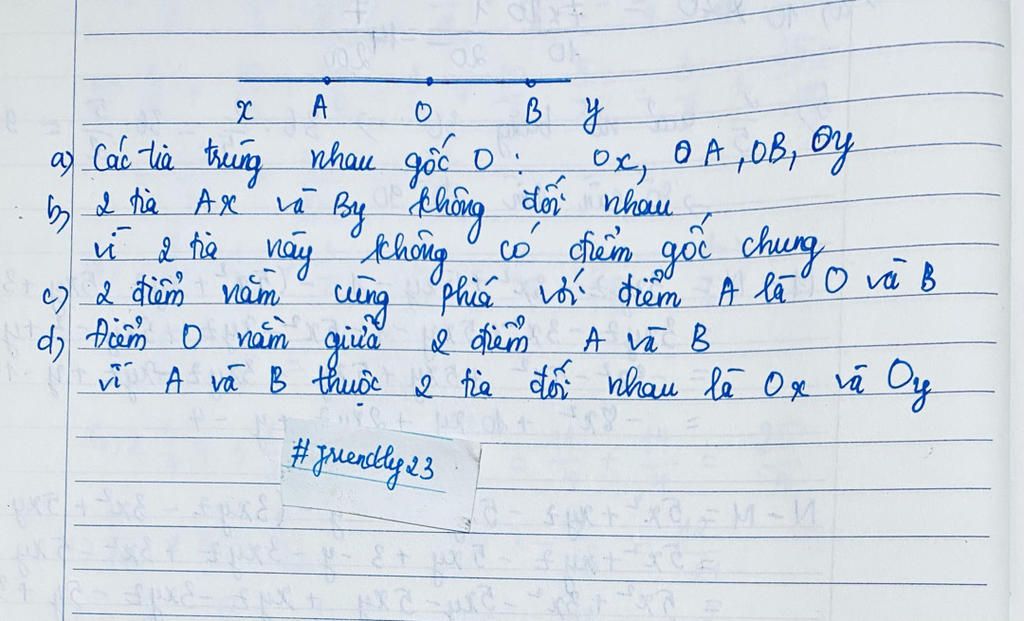 x A O B y
a) Các tia trùng nhau gốc O : Ox, OA, OB, Oy
b) 2 tia Ax và By không đối nhau
vì 2 tia này không có điểm gốc chung
c) 2 điểm nằm cùng phía với điểm A là O và B
d) Điểm O nằm giữa 2 điểm A và B
vì A và B thuộc 2 tia đối nhau là Ox và Oy
#friendly23